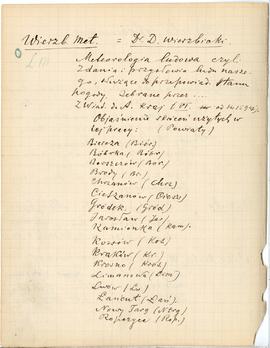 Wierzb. Met. = Dr D. Wierzbicki.
Meteorologia ludowa czyli
Zdania i przysłowia ludu nasze-
go, służące do przepowiad. stanu
pogody, zebrane przez ....
Objaśnienie skróceń użytych w
tej pracy: (Powiaty)
Biecza (Biec)
Bóbrka (Bóbr)
Borszczów (Bor.)
Brody (Br.)
Chrzanów (Chrz)
Cieszanów (Ciesz)
Gródek (Gród)
Jarosław (Jar)
Kamionka (Kam).
Kossów (Kos)
Kraków (Kr.)
Krosno (Kros)
Limanowa (Lim)
Lwów (Lw)
Łańcut (Łań).
Nowy Targ (Ntrg)
Ropczyce (Rop.)